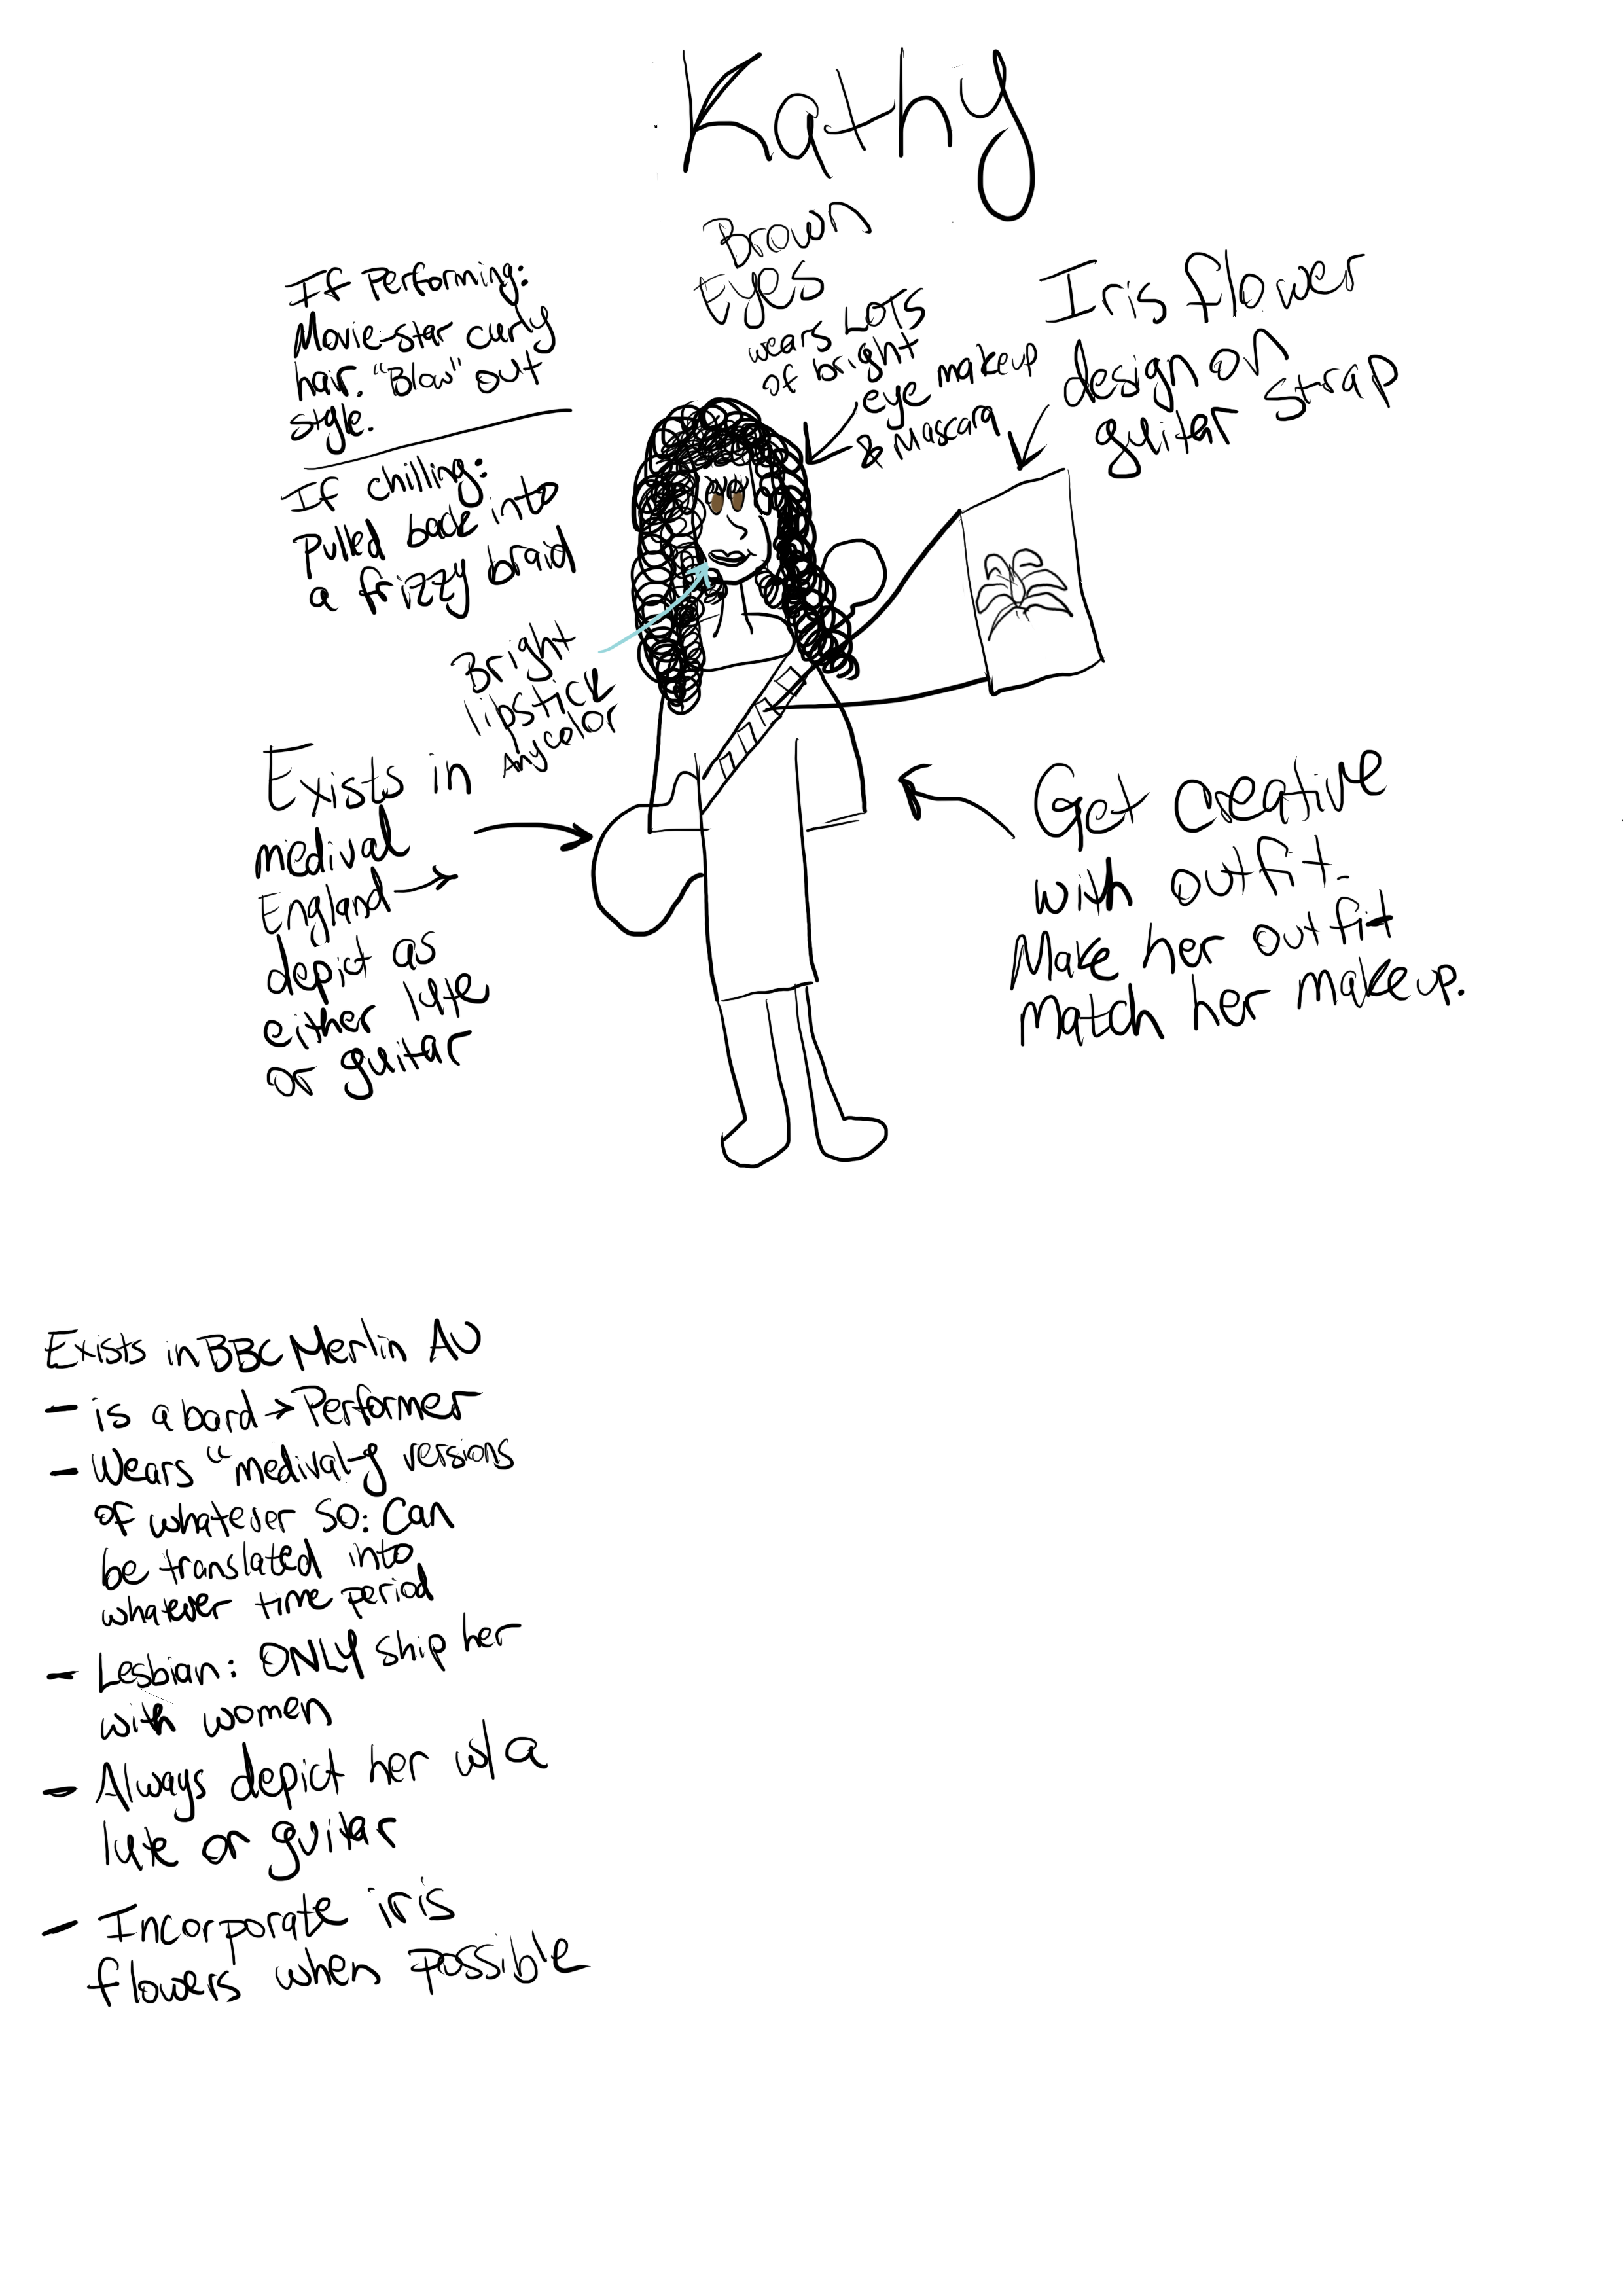 Kathy
Brown
Eyes
wears LOTS
of bright
eye makeup
& Mascara
If Performing:
Movie-star curly
hair. "Blow" out
style.
If chilling:
Pulled back into
a frizzy braid
Iris flower
design on
guitar strap
Bright
lipstick
Any color
Exists in
medival
England →
depict as
either lute
or guitar
Get creative
with outfit.
Make her outfit
Match her makeup.
Exists in BBC Merlin AU
- is a bard → Performer
- Wears "medival-y versions
of whatever so: Can
be translated into
whatever time period
- Lesbian: ONLY ship her
with women
- Always depict her w/ a
lute or guitar
- Incorporate iris
flowers when possible